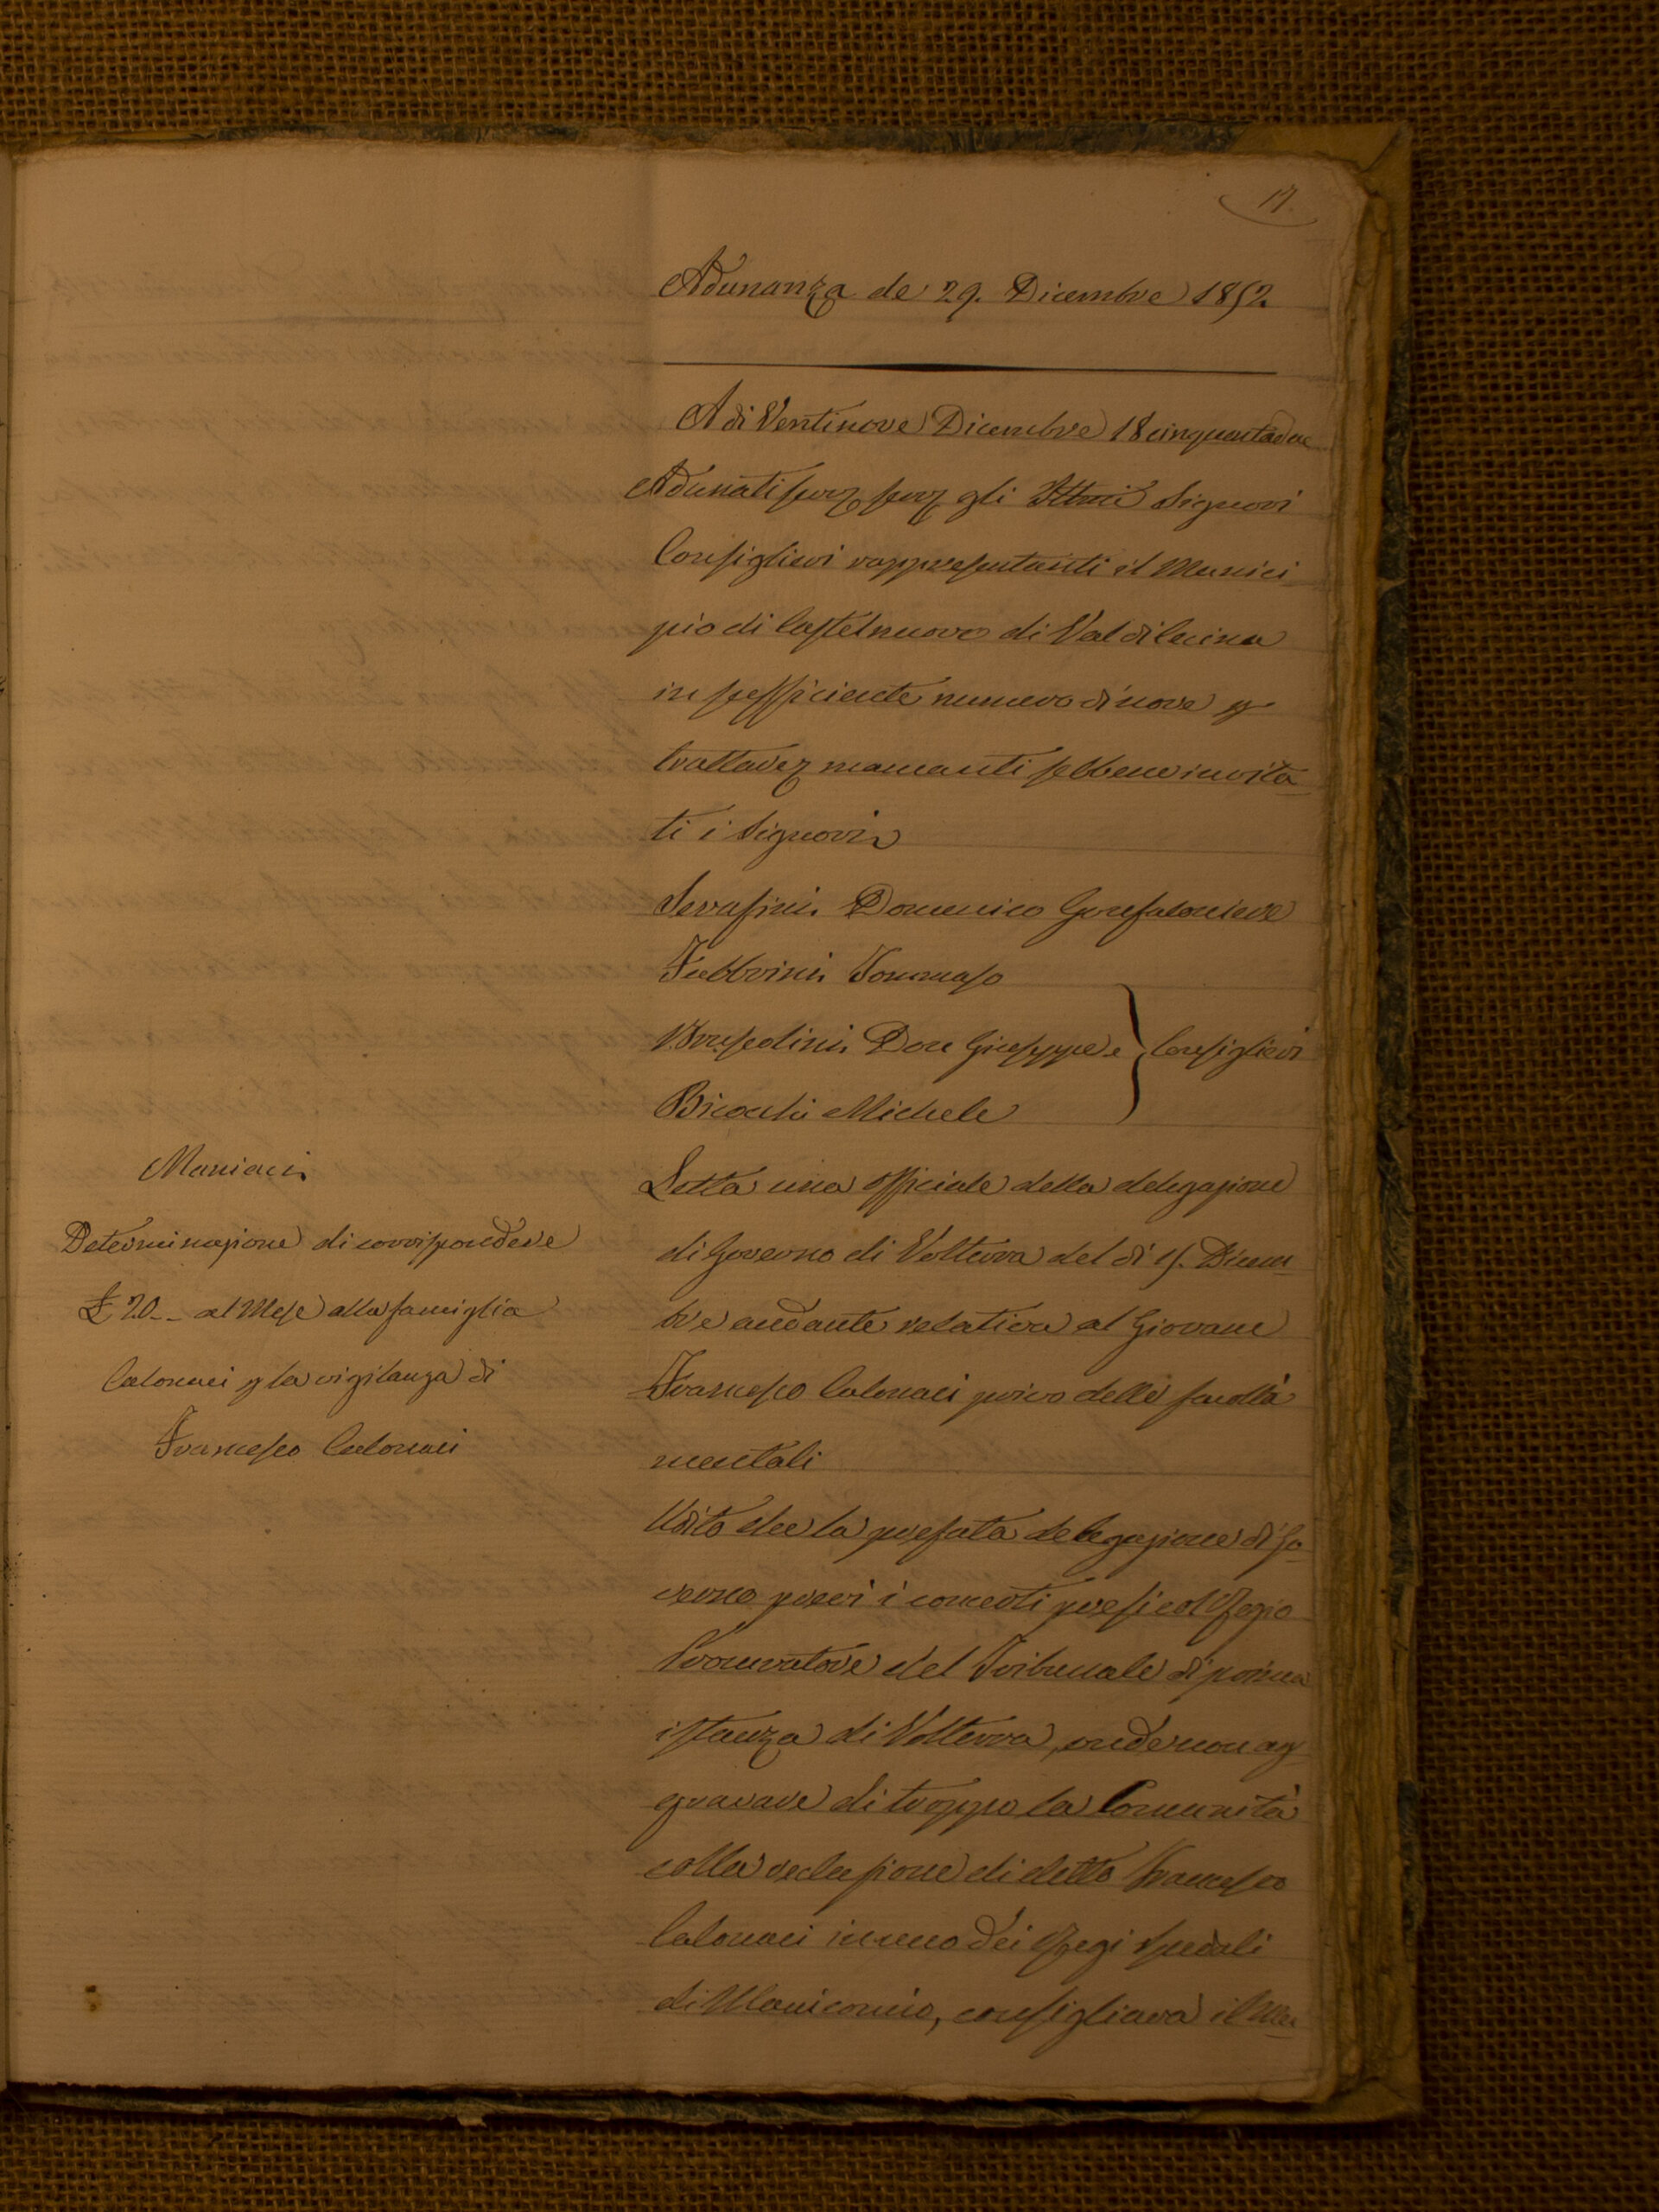 17.
Adunanza de' 29. Dicembre 1852.
A di Ventinove Dicembre 18cinquantadue
Adunati gli Ittmi Signori
Consiglieri rappresentanti il Munici
pio di Castelnuovo di Val di Cecina
in sufficiente numero di nove p
trattare mancanti sebbene invita
ti i Signori
Serafini Domenico Gonfaloniere
Fabbrini Tommaso
Don Giuseppe } Consiglieri
Michele
Maniaci
Determinazione di corrispondere
£ 20 -- al Mese alla famiglia
Calonaci p la vigilanza di
Francesco Calonaci
Letta una Officiale della delegazione
di Governo di Volterra del di Dicem
bre andante relativa al Giovane
Francesco Calonaci privo delle facoltà
mentali
Udito che la prefata delegazione di Go
verno previ i concerti presi col Regio
Procuratore del Tribunale di prima
istanza di Volterra, onde non ag
gravare di troppo la Comunità
colla reclusione di detto Francesco
Calonaci in uno dei Regi Spedali
di Manicomio, consigliava il Mu